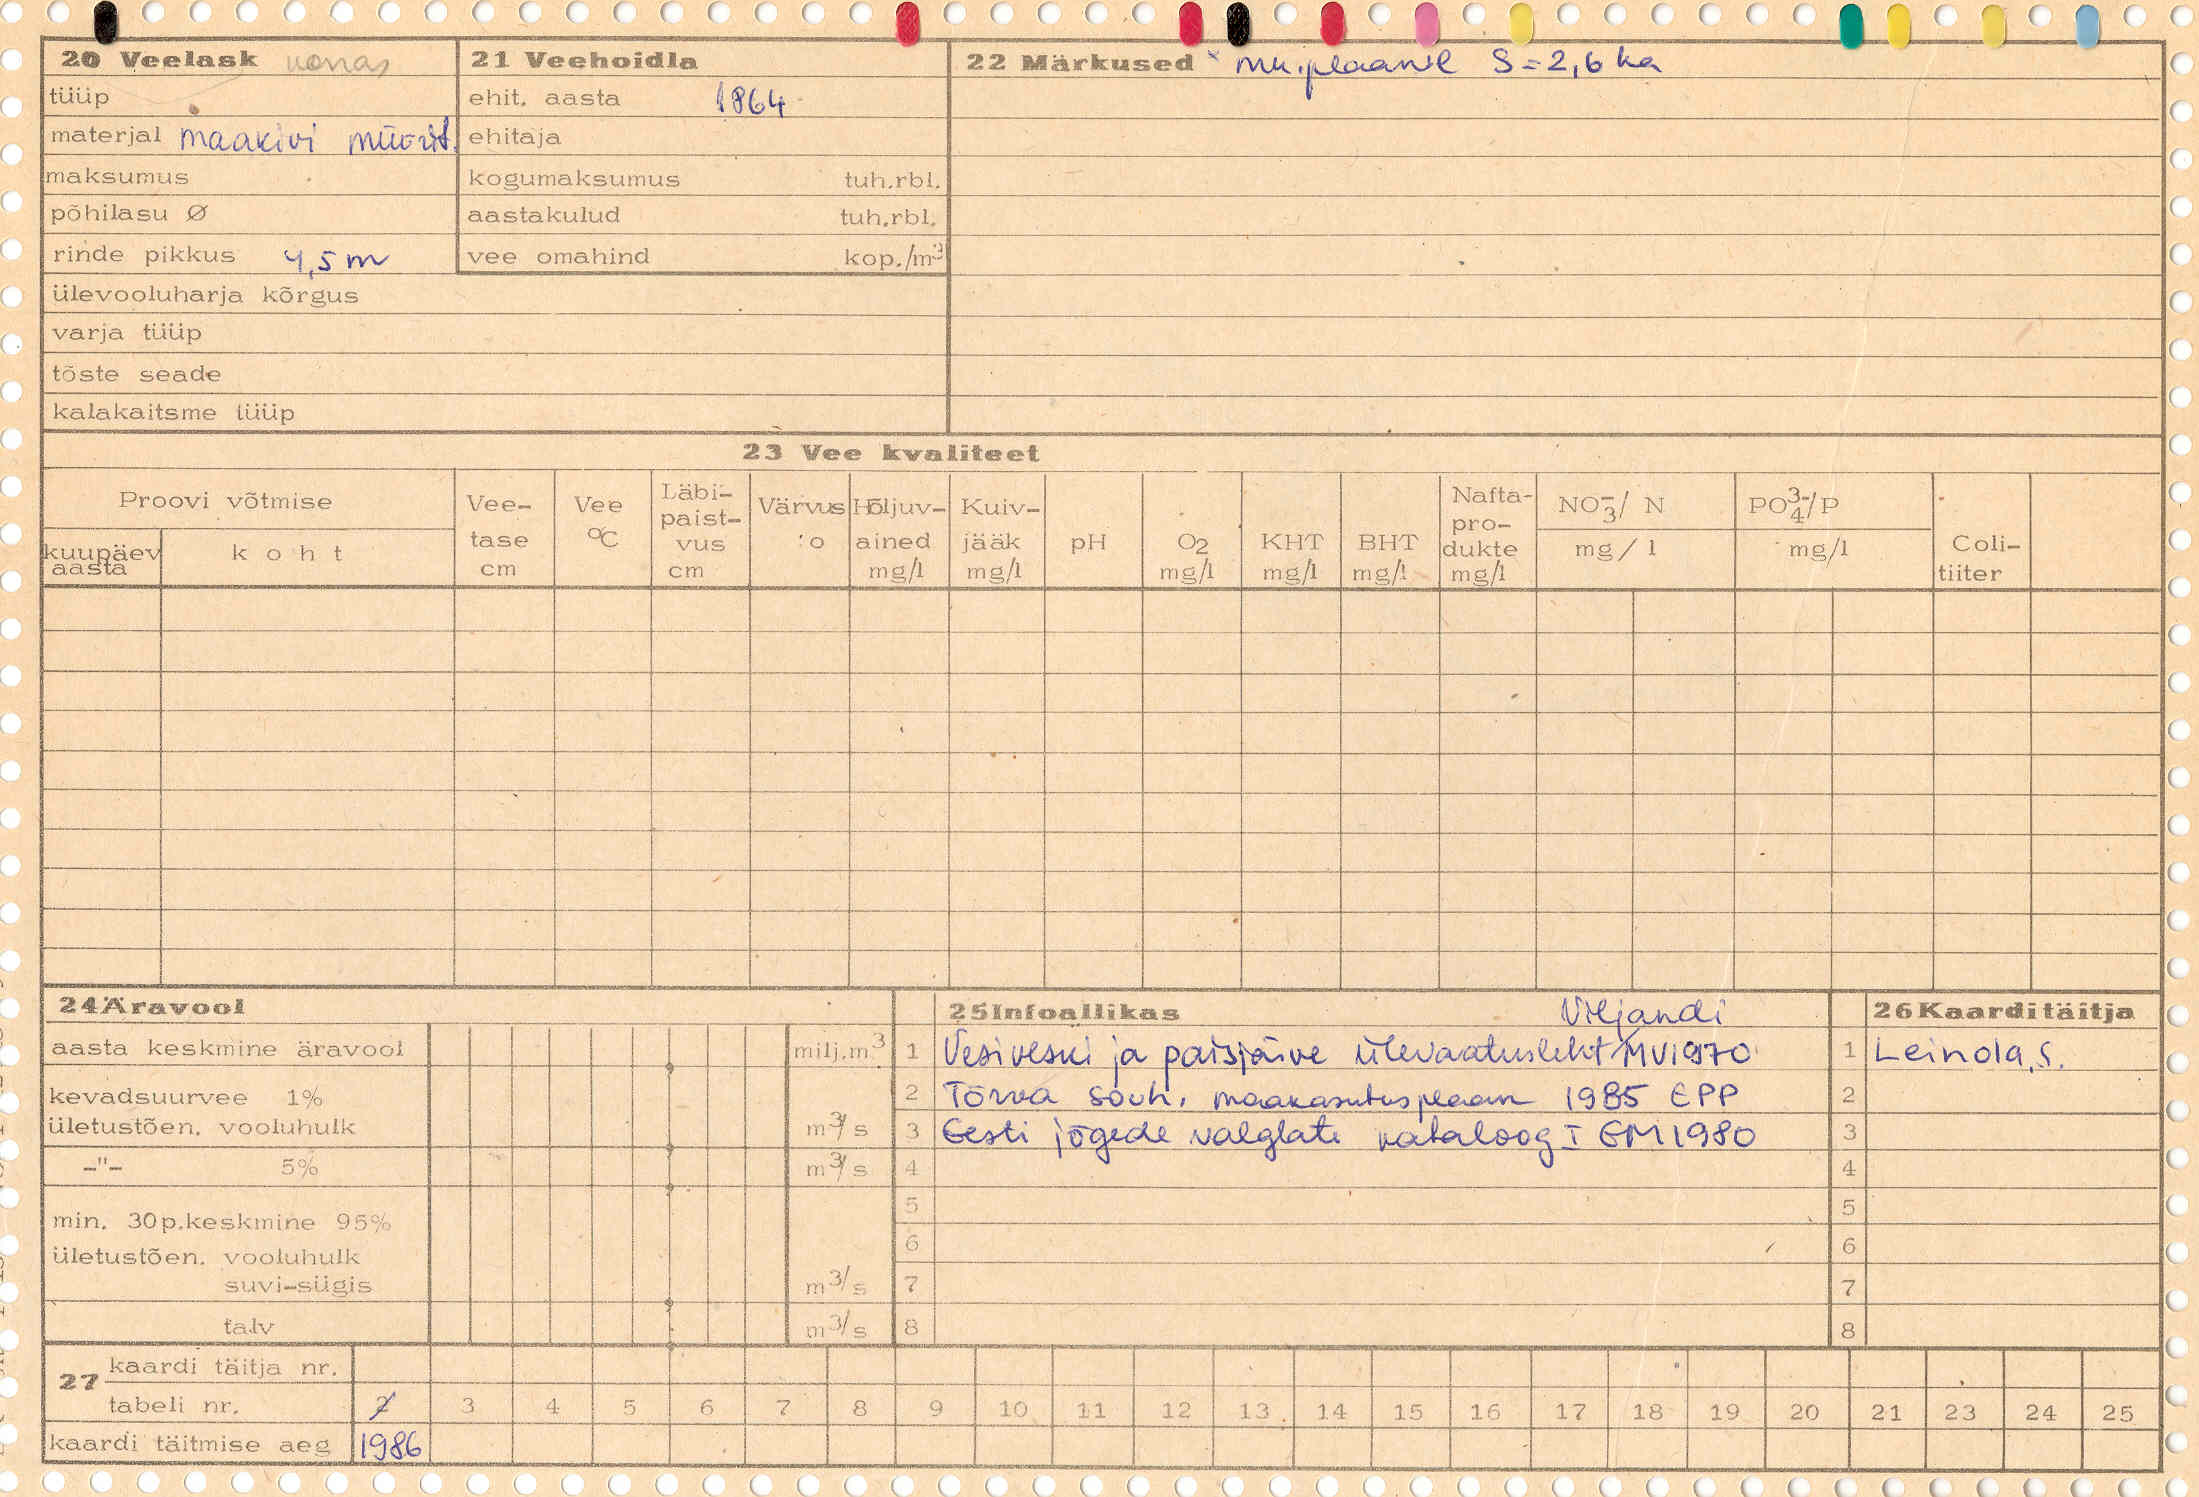 20 Veelask
tüüp
materjal maakivi müürit.
maksumus
põhilasu Ø
rinde pikkus 4,5 m
ülevooluharja kõrgus
varja tüüp
tõste seade
kalakaitsme tüüp
21 Veehoidla
ehit. aasta 1864
ehitaja
kogumaksumus tuh.rbl.
aastakulud tuh.rbl.
vee omahind kop./m3
22 Märkused x mk. plaanil S = 2,6 ha
23 Vee kvaliteet
Proovi võtmise
kuupäev aasta
koht
Vee-
tase
cm
Vee
°C
Läbi-
paist-
vus
cm
Värvus
:o
Hõljuv-
ained
mg/l
Kuiv-
jääk
mg/l
pH
O2
mg/l
KHT
mg/l
BHT
mg/l
Nafta-
pro-
dukte
mg/l
NO3-/ N
mg / l
PO4 3-/P
mg/l
Coli-
tiiter
24 Äravool
aasta keskmine äravool milj.m3
kevadsuurvee 1%
ületustõen. vooluhulk m3/s
-"- 5% m3/s
min. 30p.keskmine 95%
ületustõen. vooluhulk
suvi-sügis m3/s
talv m3/s
25 Infoallikas Viljandi
1 Vesiveski ja paisjärve ülevaatusleht MV 1970
2 Tõrva sovh. maakasutusplaan 1985 EPP
3 Eesti jõgede valglate kataloog I EM 1980
4
5
6
7
8
26 Kaardi täitja
1 Leinola, S.
2
3
4
5
6
7
8
27
kaardi täitja nr.
tabeli nr. 2 3 4 5 6 7 8 9 10 11 12 13 14 15 16 17 18 19 20 21 23 24 25
kaardi täitmise aeg 1986